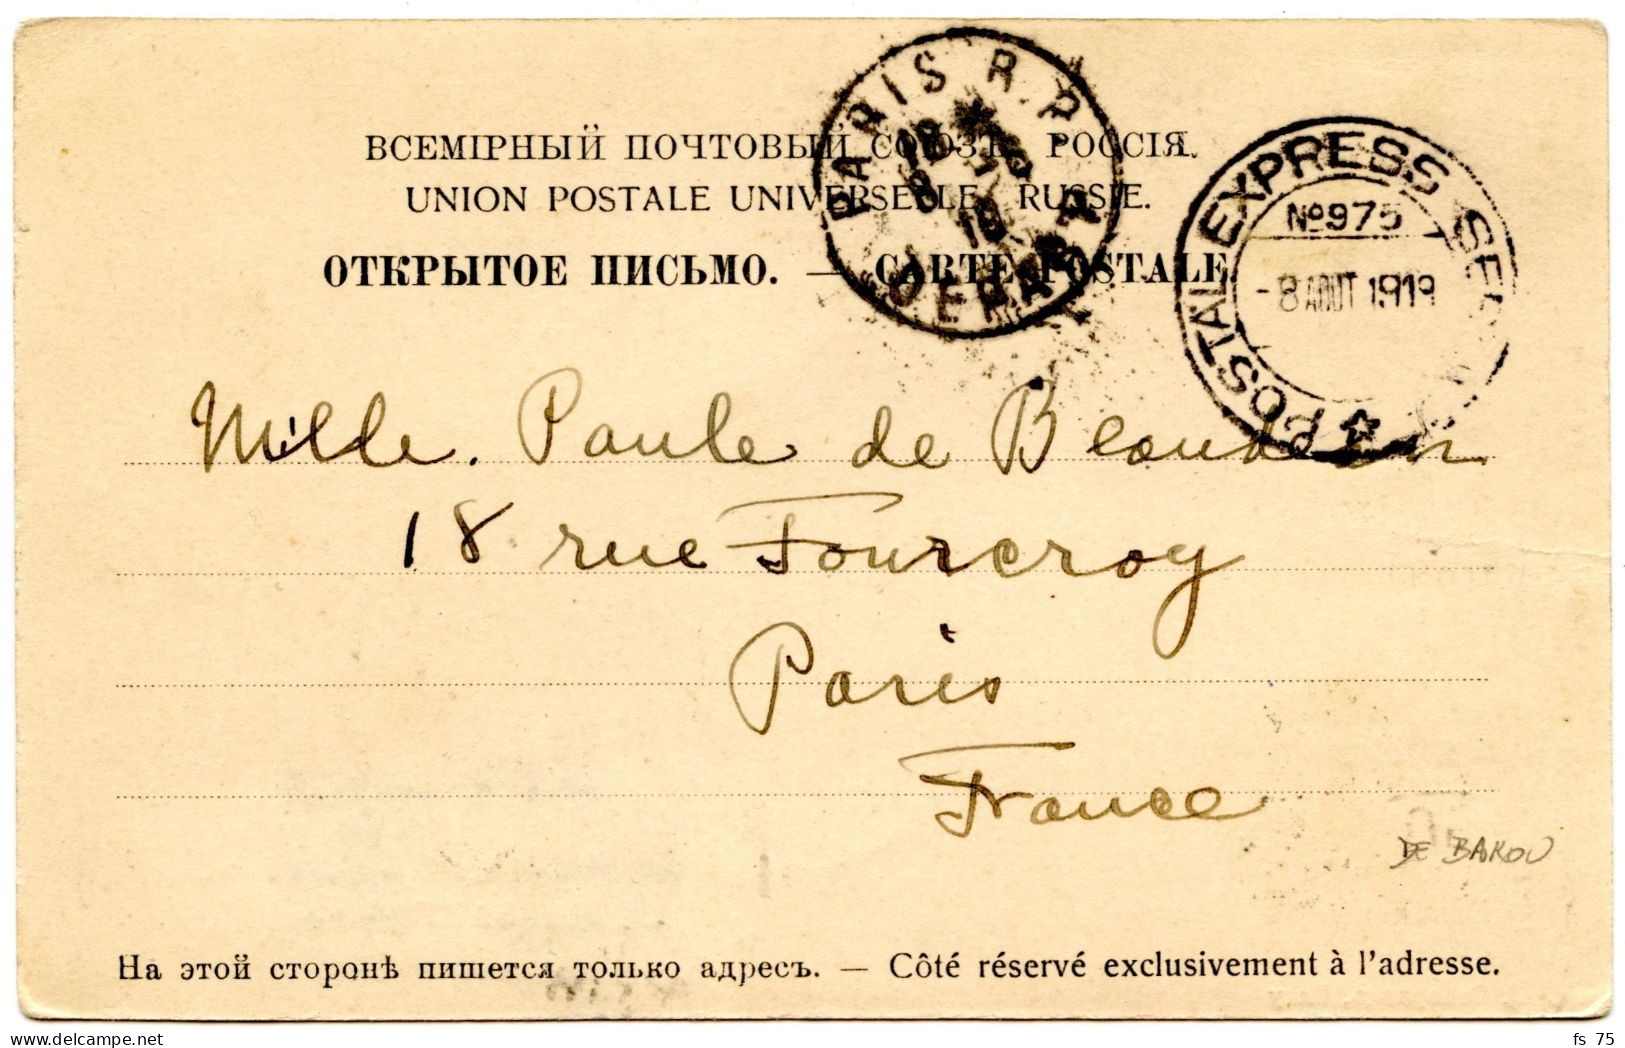 ВСЕМІРНЫЙ ПОЧТОВЫЙ СОЮЗЪ. РОССІЯ.
UNION POSTALE UNIVERSELLE. RUSSIE.
ОТКРЫТОЕ ПИСЬМО. — CARTE POSTALE.
PARIS R.P.
POSTAL EXPRESS
No 975
-8 AOUT 1919
Mlle. Paule de
18 rue Fourcroy
Paris
France
DE BAKOU
На этой сторонѣ пишется только адресъ. — Côté réservé exclusivement à l'adresse.
fs 75